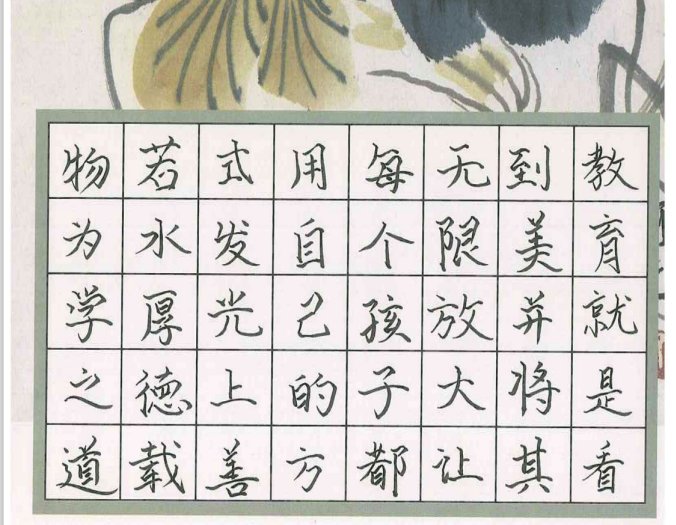 教育就是看
到美并将其
无限放大让
每个孩子都
用自己的方
式发光上善
若水厚德载
物为学之道